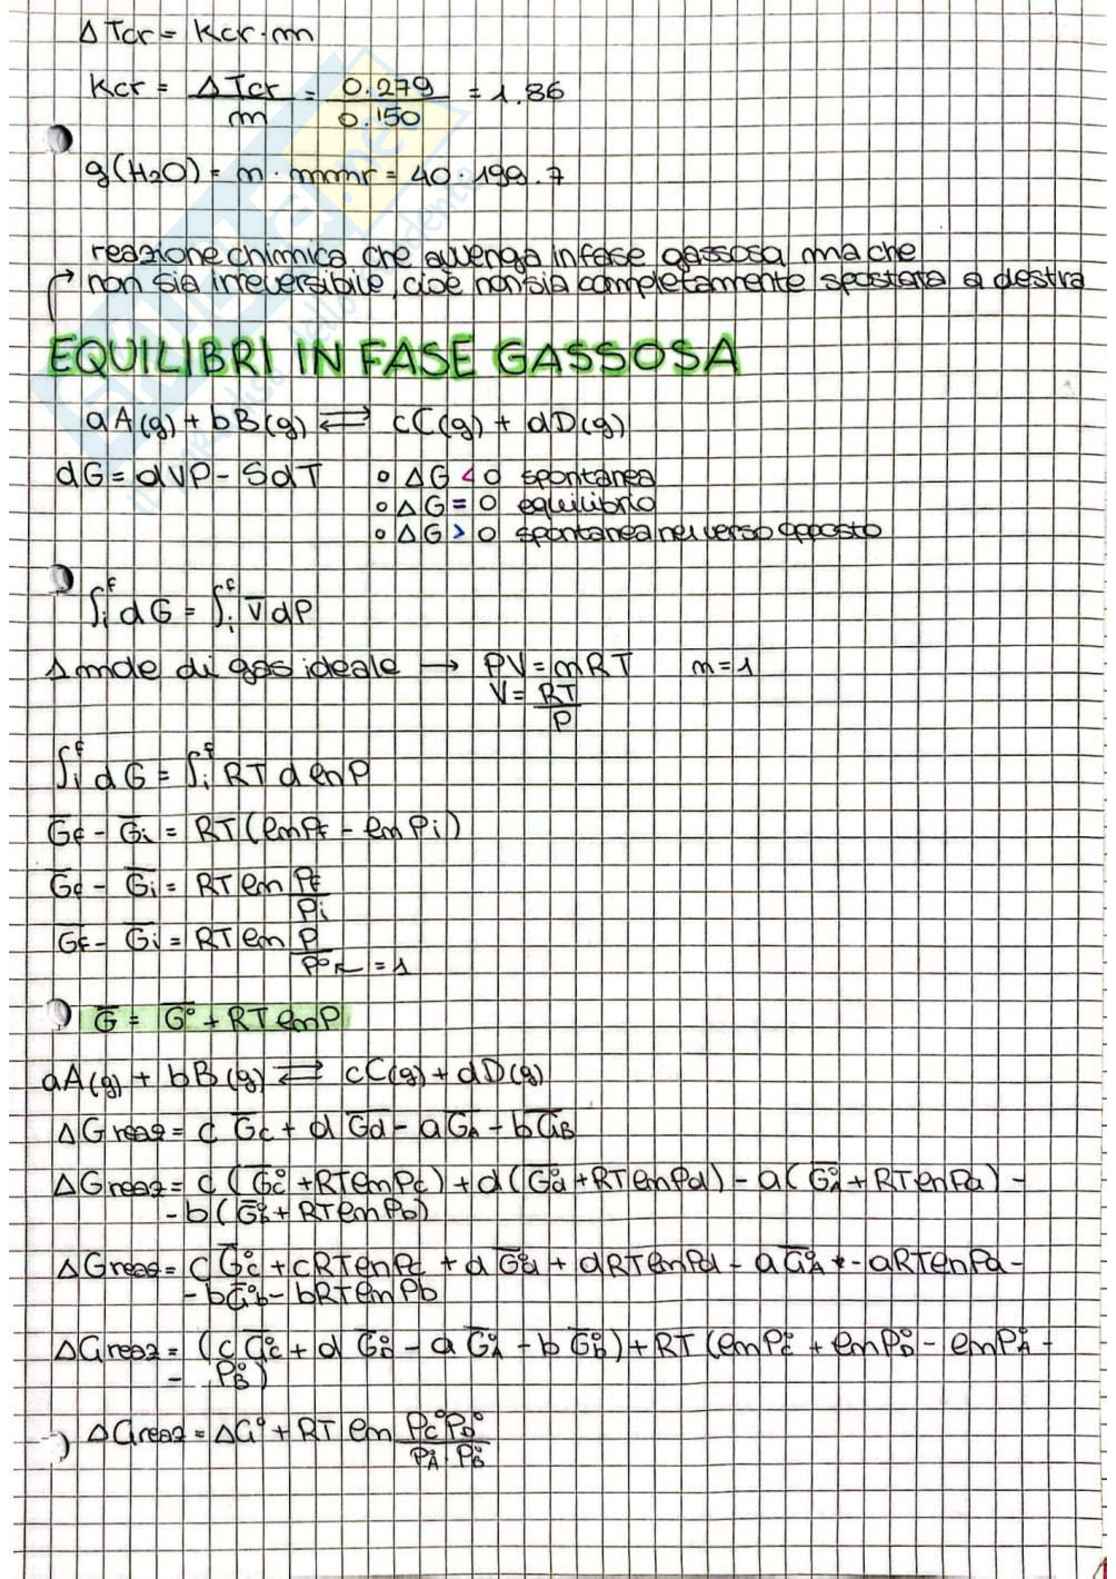 ΔTcr = Kcr·m
Kcr = ΔTcr/m = 0.279/0.150 = 1.86
g(H2O) = m · mmr = 40·199.7
reazione chimica che avvenga in fase gassosa ma che
→ non sia irreversibile, cioè non sia completamente spostata a destra
EQUILIBRI IN FASE GASSOSA
aA(g) + bB(g) ⇄ cC(g) + dD(g)
dG = dVP - SdT ∘ ΔG < 0 spontanea
∘ ΔG = 0 equilibrio
∘ ΔG > 0 spontanea nel verso opposto
∫i^f dG = ∫i^f V̅dP
1 mole di gas ideale → PV = nRT n=1
V = RT/P
∫i^f dG = ∫i^f RT dlnP
G̅f - G̅i = RT(lnPf - lnPi)
G̅f - G̅i = RT ln Pf/Pi
G̅f - G̅i = RT ln P/P° ← =1
G̅ = G̅° + RT lnP
aA(g) + bB(g) ⇄ cC(g) + dD(g)
ΔGreaz = c G̅c + d G̅d - a G̅A - b G̅B
ΔGreaz = c (G̅°c + RTlnPc) + d (G̅°d + RTlnPd) - a (G̅°A + RTlnPa) -
- b (G̅°b + RTlnPb)
ΔGreaz = c G̅°c + cRTlnPc + d G̅°d + dRTlnPd - a G̅°A - aRTlnPa -
- b G̅°b - bRTlnPb
ΔGreaz = (c G̅°c + d G̅°D - a G̅°A - b G̅°B) + RT (lnP°c + lnP°D - lnP°A -
- P°B)
ΔGreaz = ΔG° + RT ln Pc°PD°/P°A·P°B